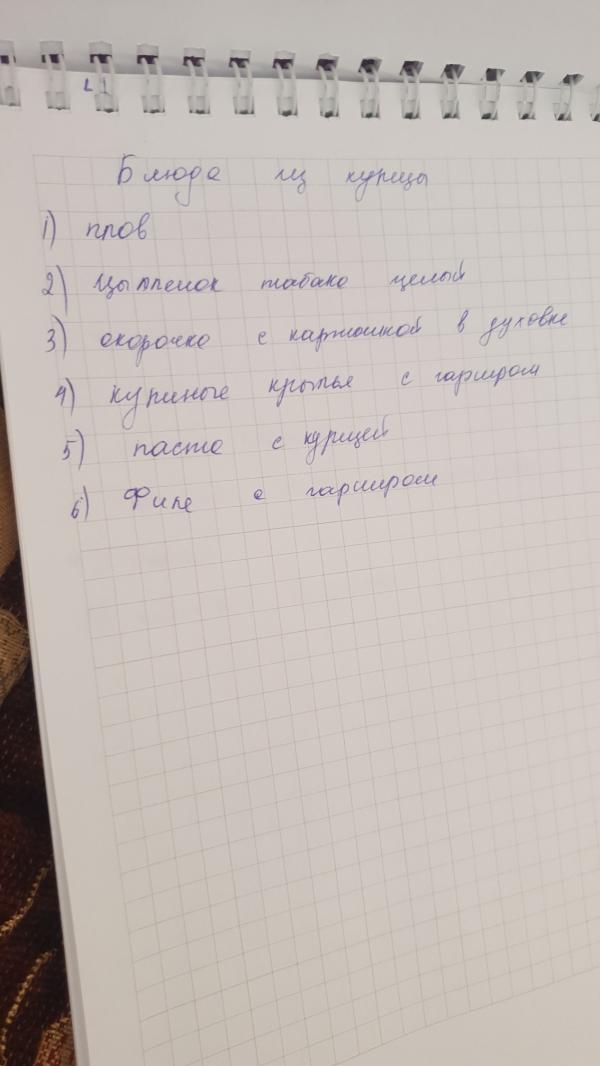 Блюда из курицы
1) плов
2) Цыпленок табака целый
3) окорочка с картошкой в духовке
4) куриные крылья с гарниром
5) паста с курицей
6) Филе с гарниром